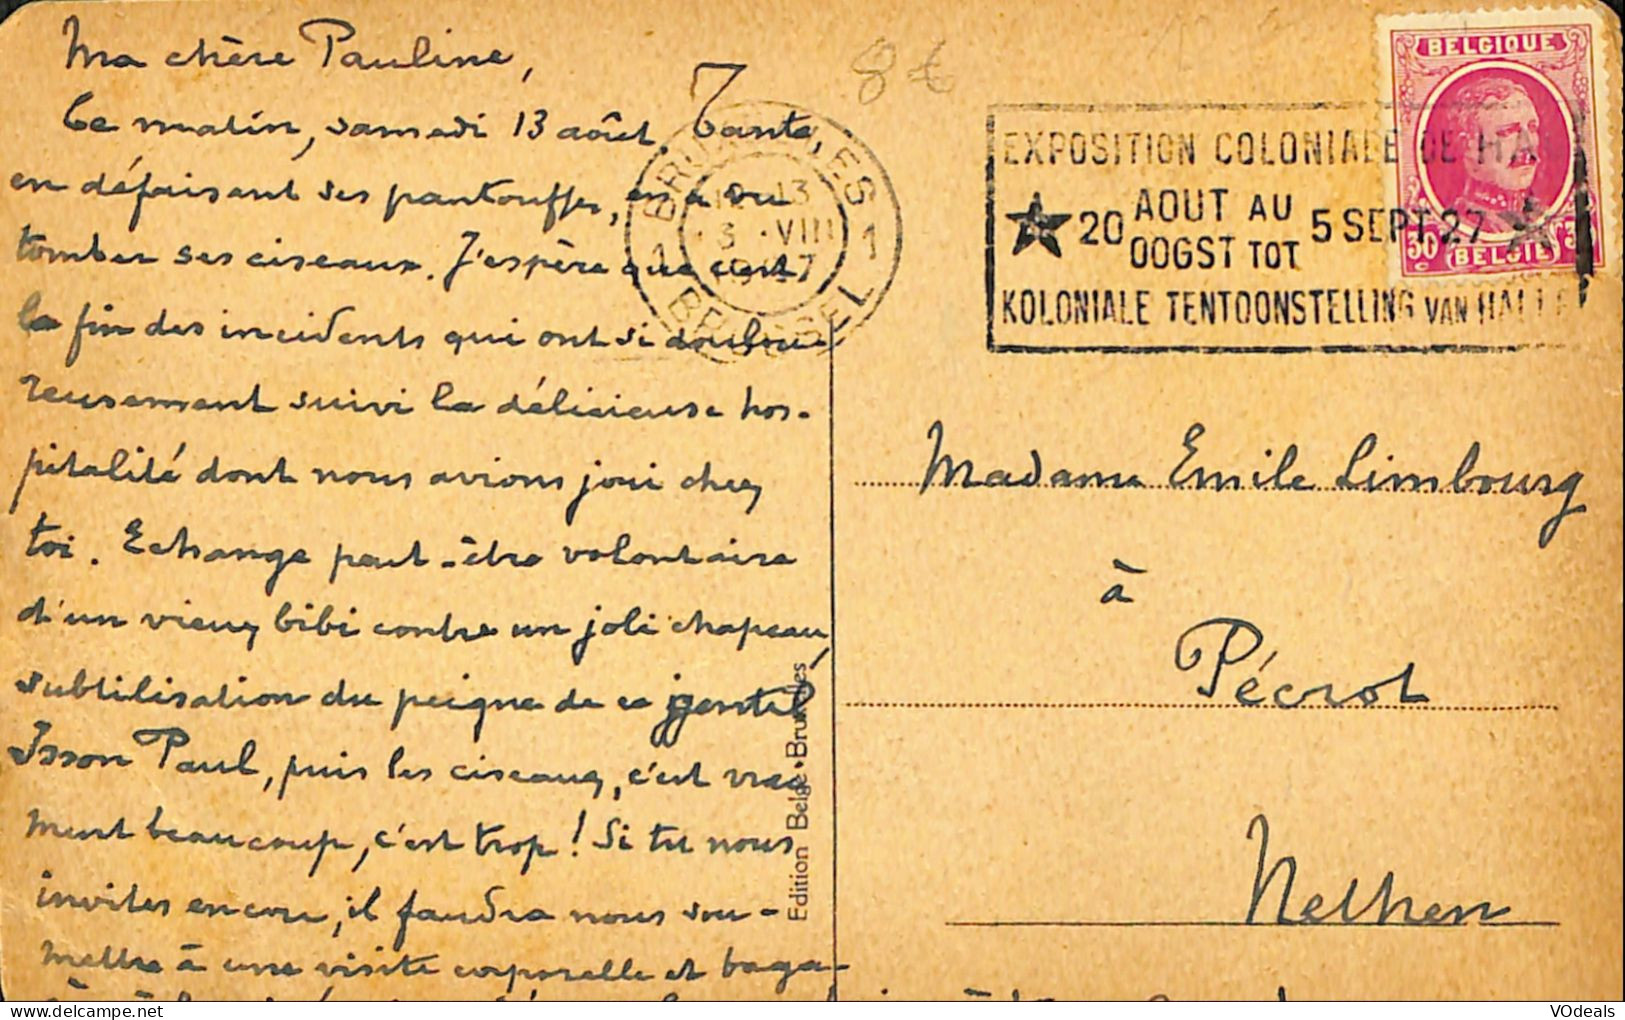 Ma chère Pauline,
Ce matin, samedi 13 août, Tante,
en défaisant ses pantouffes, en a vu
tomber ses ciseaux. J'espère que c'est
la fin des incidents qui ont si doulou-
reusement suivi la délicieuse hos-
pitalité dont nous avions joui chez
toi. Echange peut-être volontaire
d'un vieux bibi contre un joli chapeau,
subtilisation du peigne de ce gentil
Paul, puis les ciseaux, c'est vrai
ment beaucoup, c'est trop! Si tu nous
invites encore, il faudra nous sou-
mettre à une visite corporelle et baga-
8€
BRUXELLES
1 1
VIII
BRUSSEL
EXPOSITION COLONIALE DE HAL
20 AOUT AU 5 SEPT 27
OOGST TOT
KOLONIALE TENTOONSTELLING VAN HALLE
BELGIQUE
BELGIË
Madame Emile Limbourg
à
Pécrot
Nethen
Edition Belge • Bruxelles
VOdeals